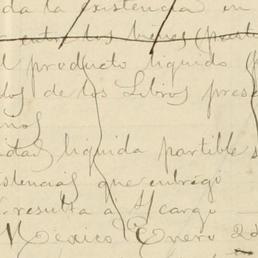 da la existencia en
entre los bienes (parti
l producto liquido (
dos de los Libros pres
nos
idad liquida partible s
istencias que entregó
resulta a su cargo
Mexico Enero 2 d